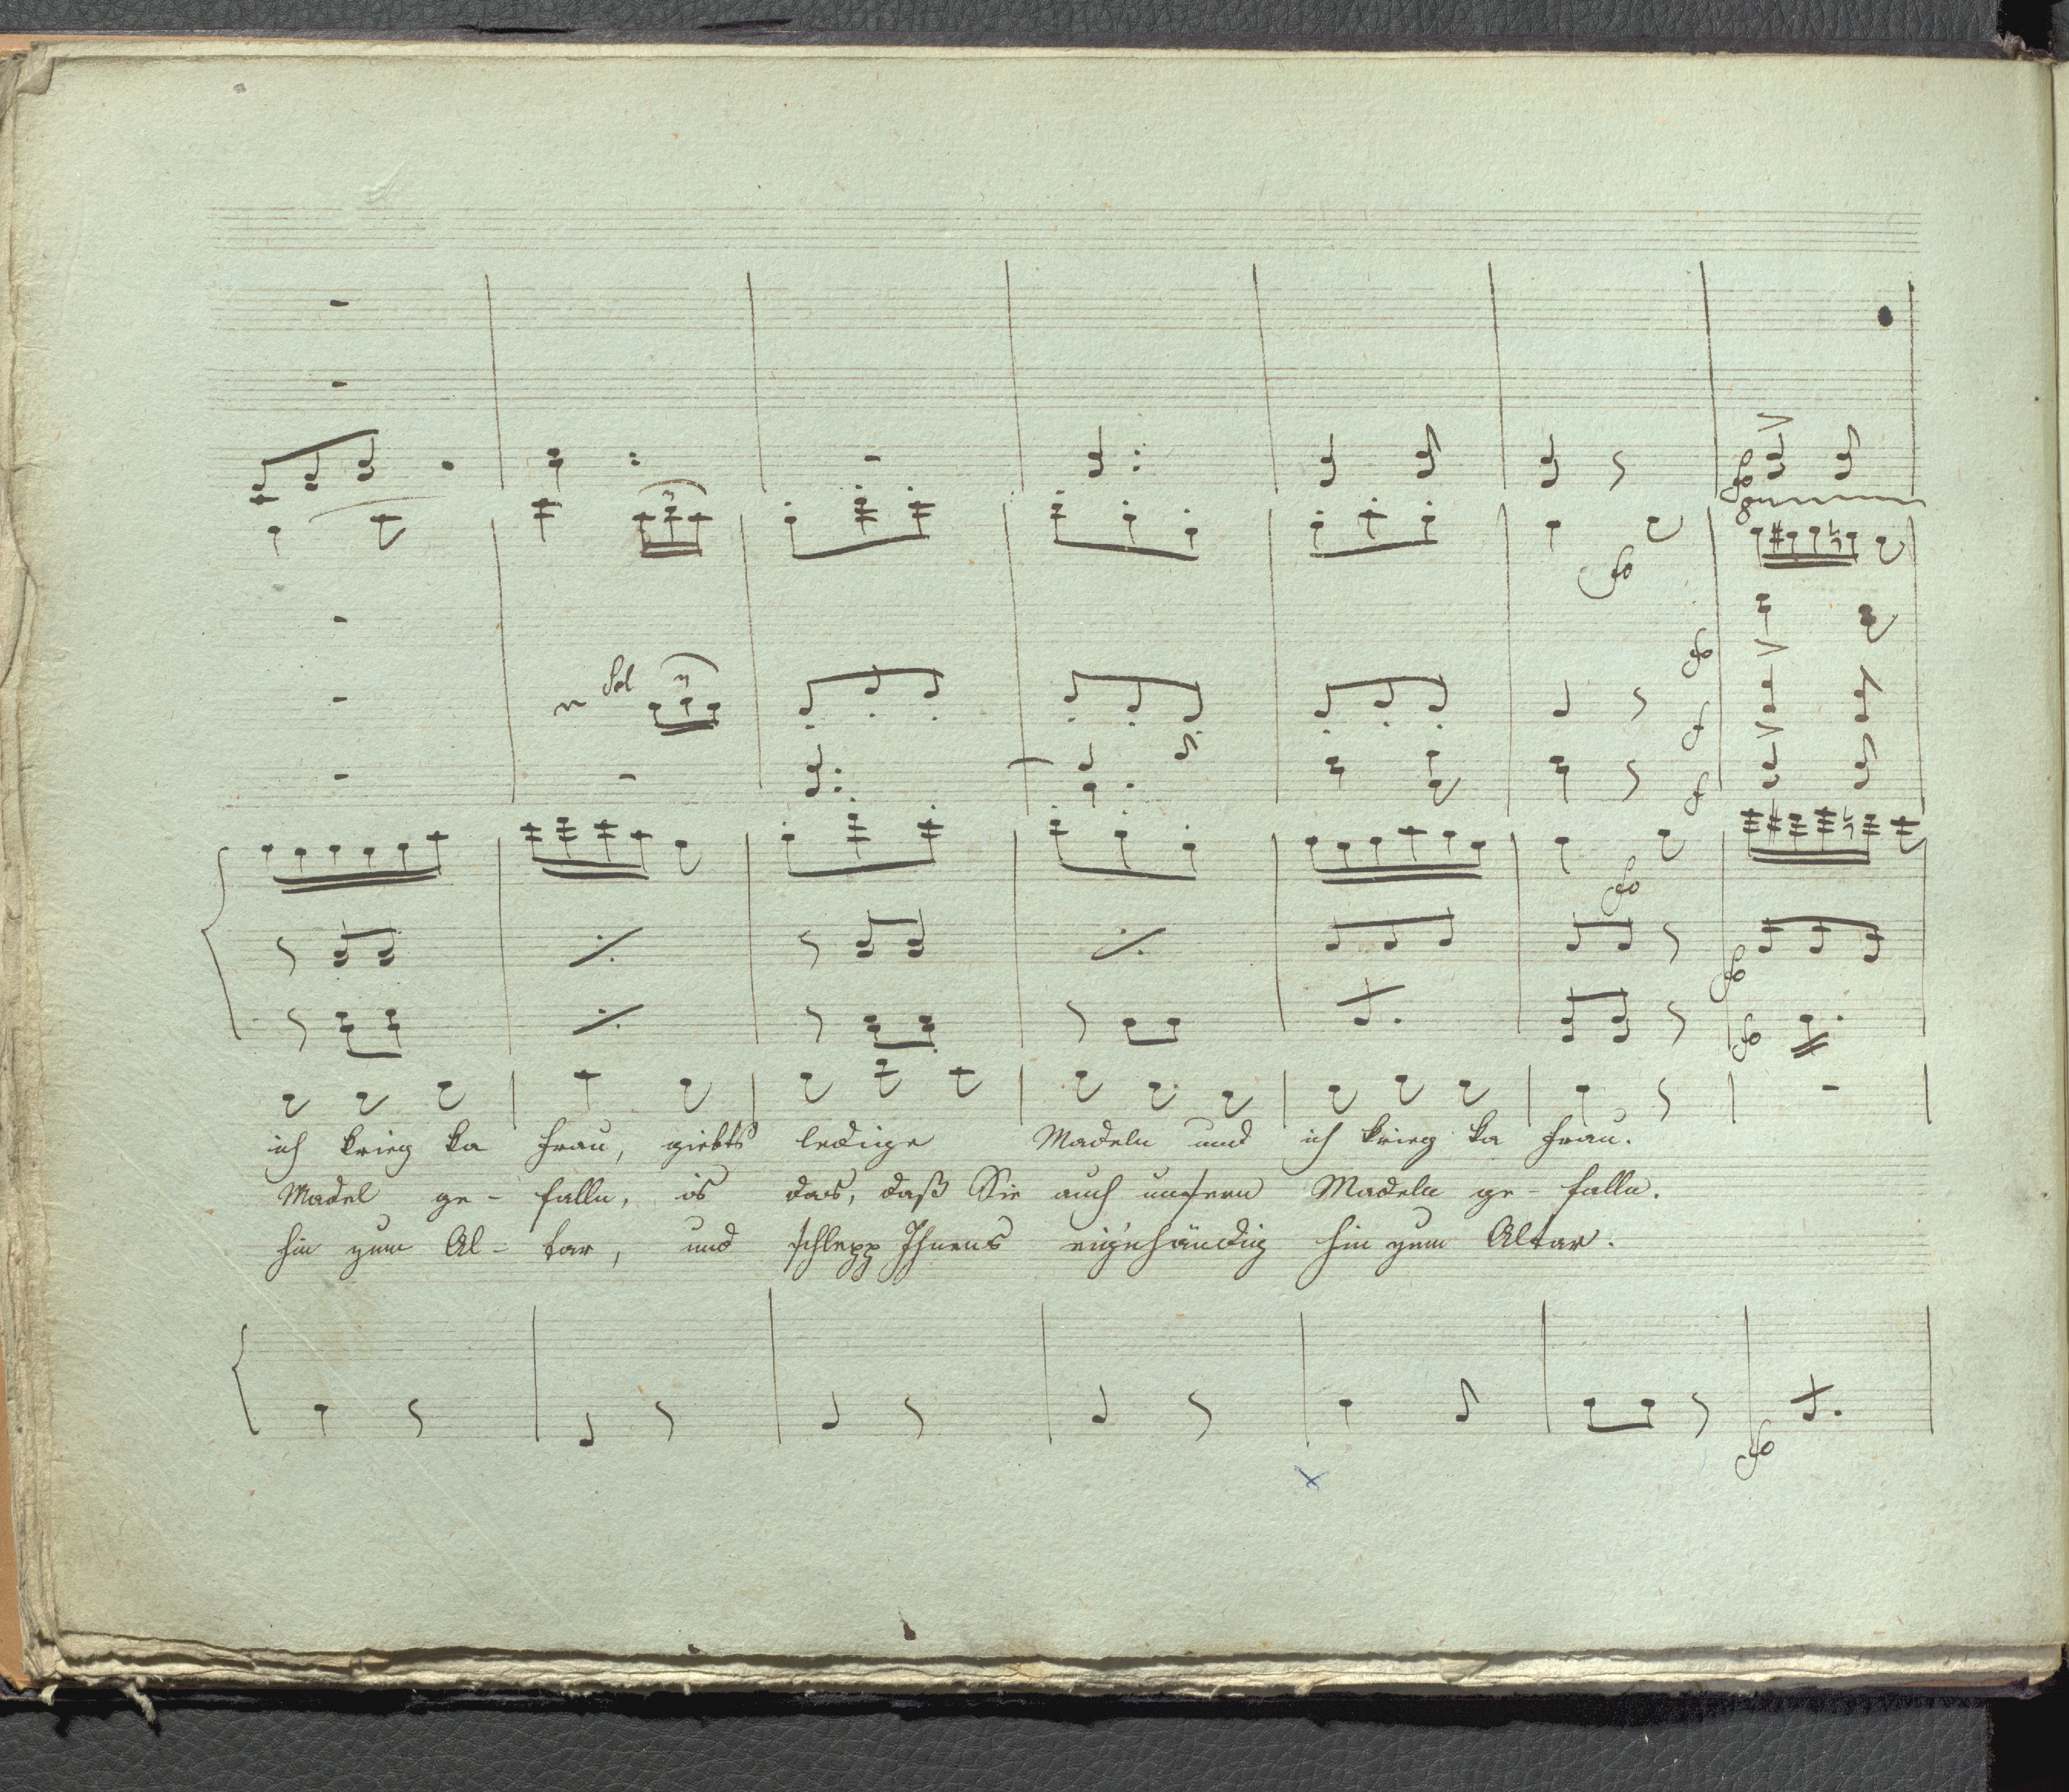 Sol
ich krieg ka Frau, giebts ledige Madeln und ich krieg ka Frau.
Madel ge- falln, is das, daß Sie auch unsern Madeln ge- falln.
hin zum Al- tar, und schlepp Ihnens eig'nhändig hin zum Altar.